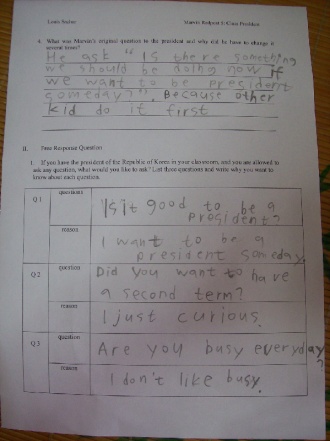 4. What was Marvin's original question to the president and why did he have to change it
several times?
He ask "Is there something
we should be doing now if
we want to be president
someday?". Because other
kid do it first
II. Free Response Question
1. If you have the president of the Republic of Korea in your classroom, and you are allowed to
ask any question, what would you like to ask? List three questions and write why you want to
know about each question.
Q 1
questions
Is it good to be a
president?
reason
I want to be a
president someday.
Q 2
question
Did you want to have
a second term?
reason
I just curious.
Q 3
question
Are you busy everyday?
reason
I don't like busy.